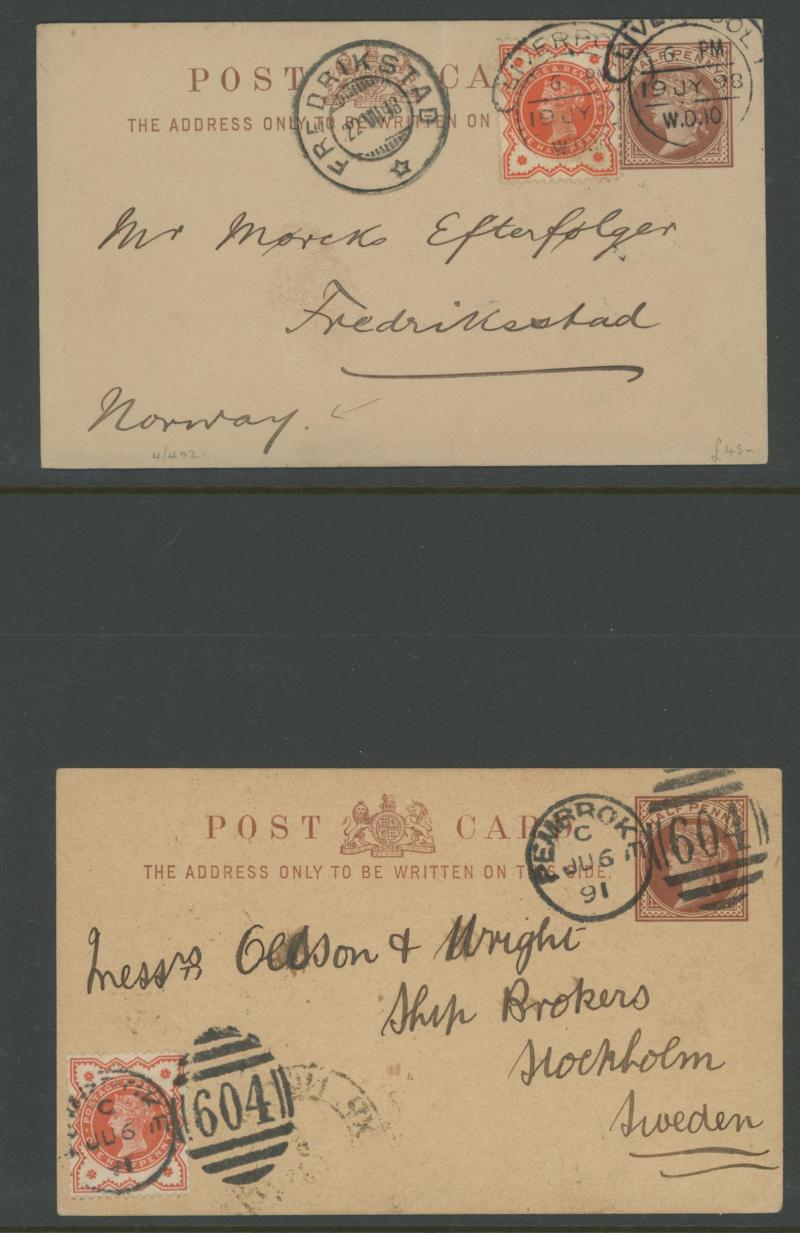 POST CA
THE ADDRESS ONLY TO BE WRITTEN ON
FREDRIKSTAD
22 VII 98
19 JY
LIVERPOOL
6 PM
19 JY 98
W.D.10
HALF PENNY
Mr Mørcks Efterfølger
Fredriksstad
Norway.
4/402
£45-
POST CARD
THE ADDRESS ONLY TO BE WRITTEN ON THIS SIDE.
PEMBROKE
C
JU 6
91
604
HALF PENNY
Messrs
& Wright
Ship Brokers
Stockholm
Sweden
C
JU 6
91
604